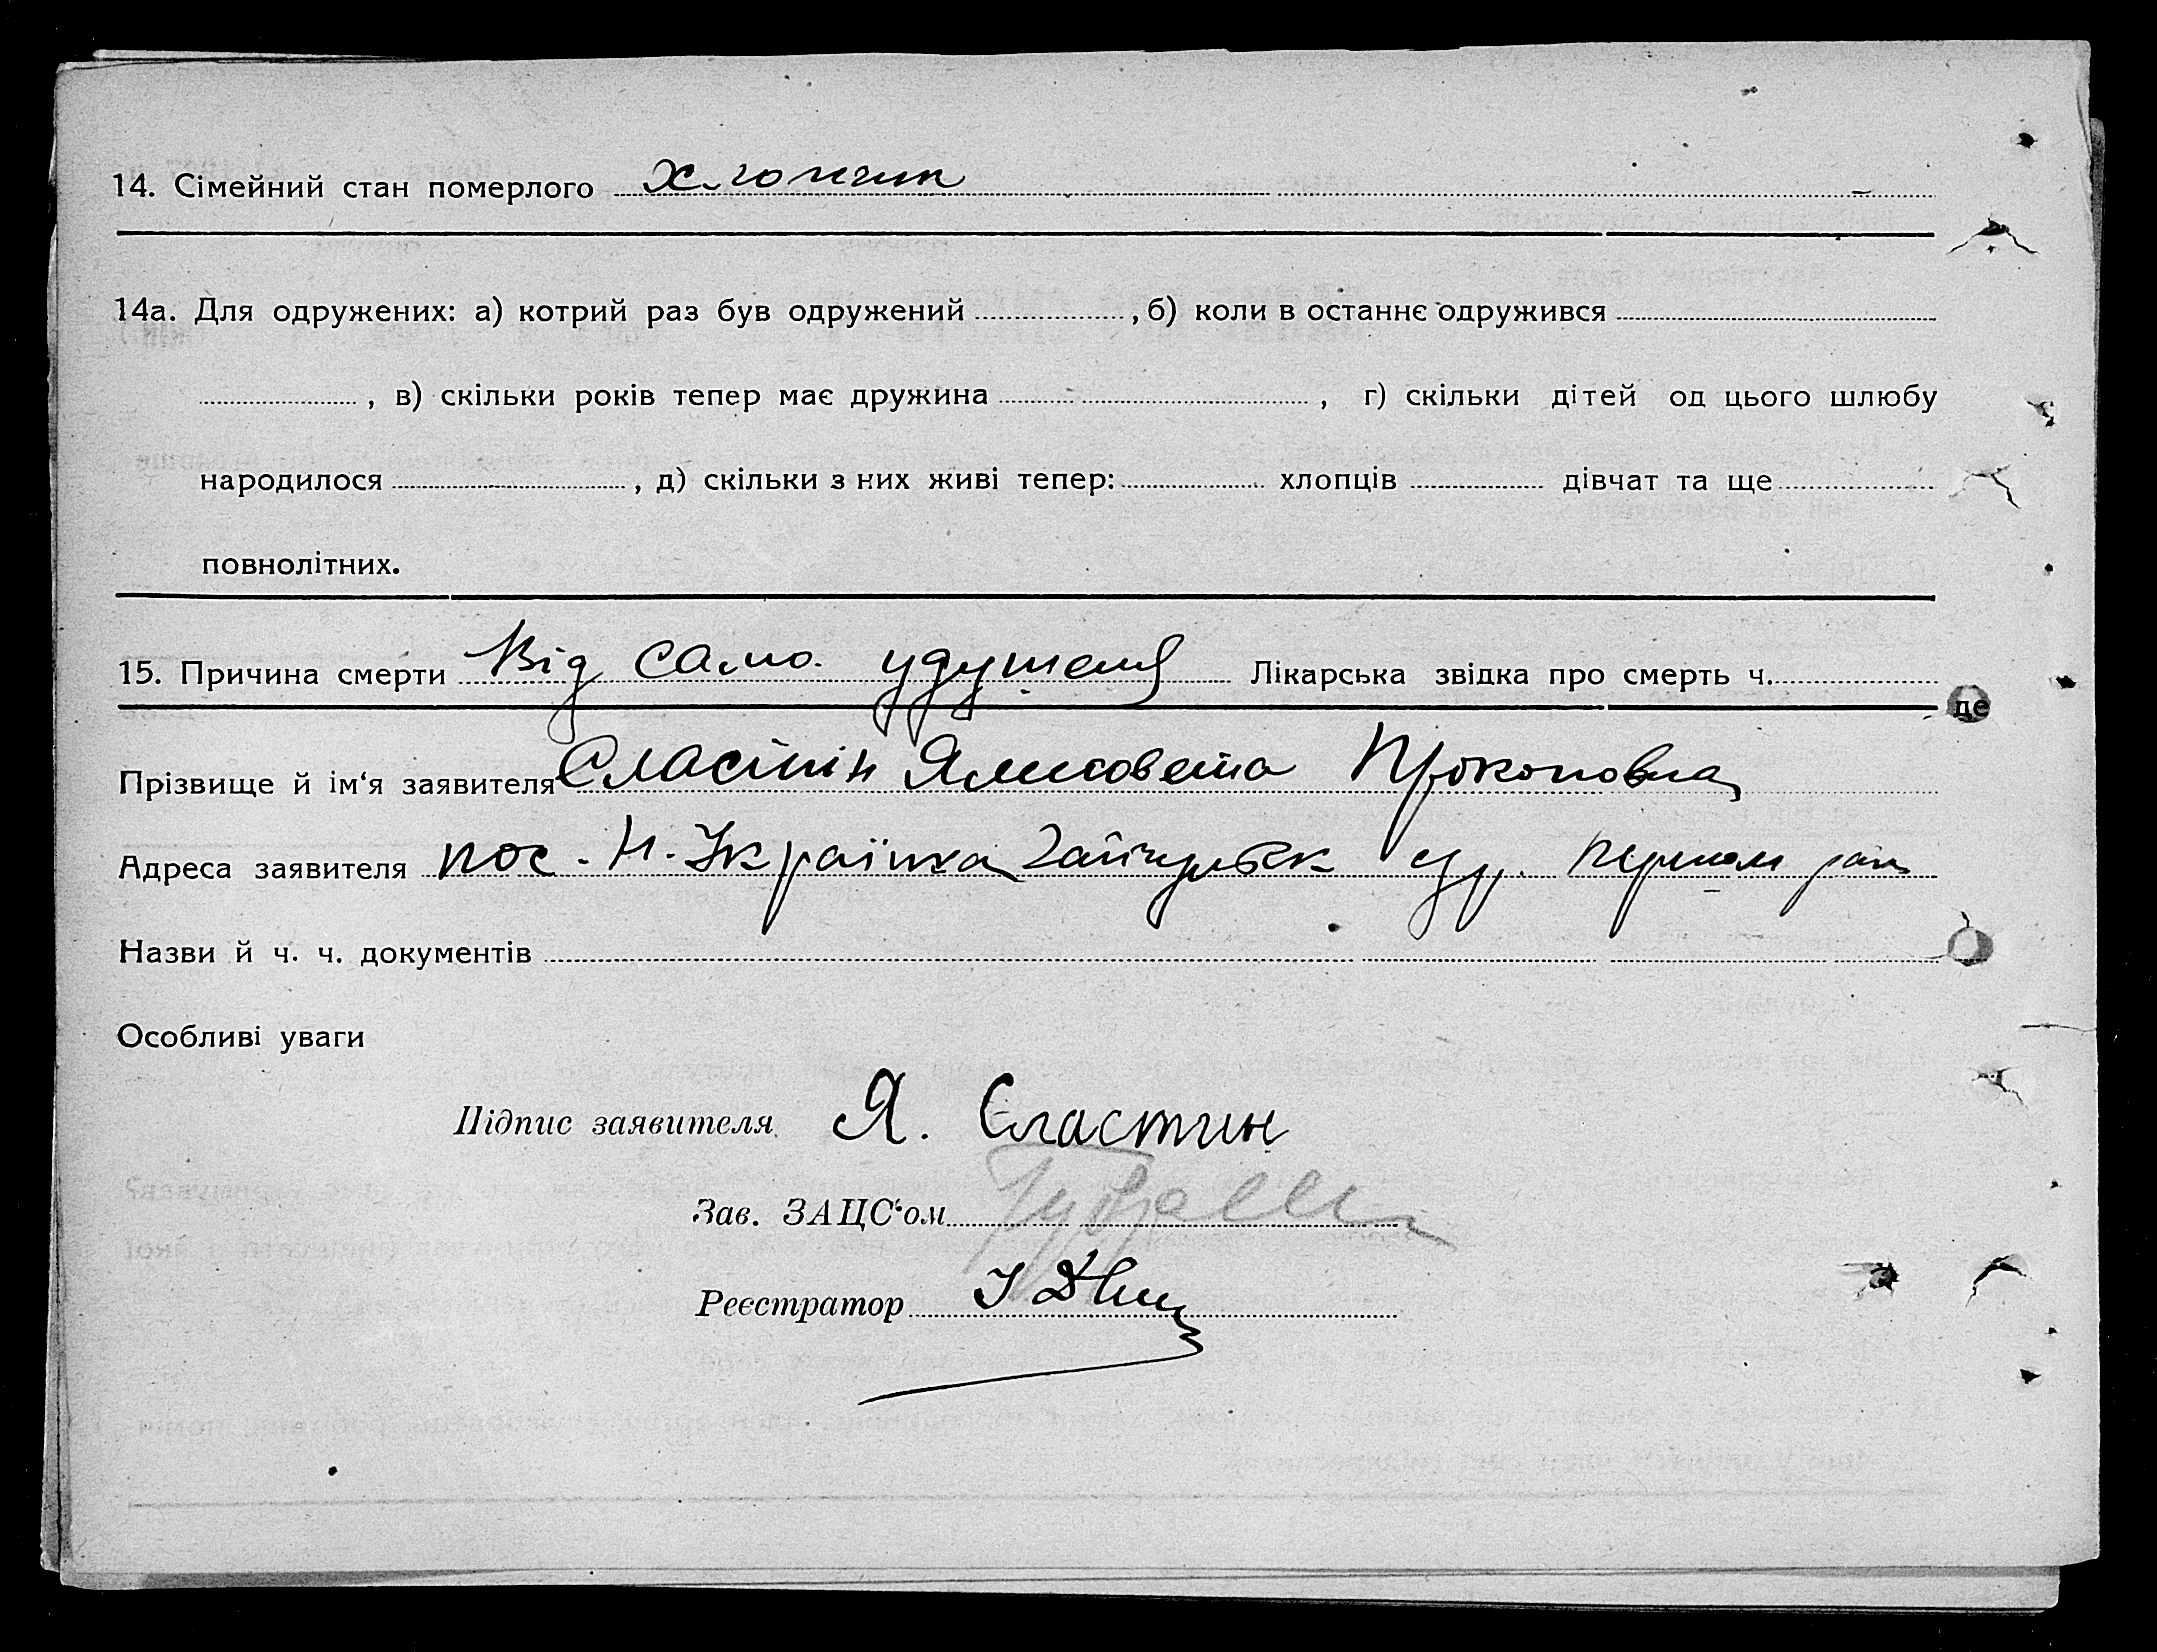 14. Сімейний стан померлого хлопчик
14а. Для одружених: а) котрий раз був одружений , б) коли в останнє одружився
, в) скільки років тепер має дружина , г) скільки дітей од цього шлюбу
народилося , д) скільки з них живі тепер: хлопців дівчат та ще
повнолітних.
15. Причина смерти Від само удушення Лікарська звідка про смерть ч.
де
Прізвище й ім'я заявителя Єластін Ялисовета Прокоповна
Адреса заявителя пос. Н. Українка
Назви й ч. ч. документів
Особливі уваги
Підпис заявителя Я. Єластин
Зав. ЗАЦС'ом
Реєстратор